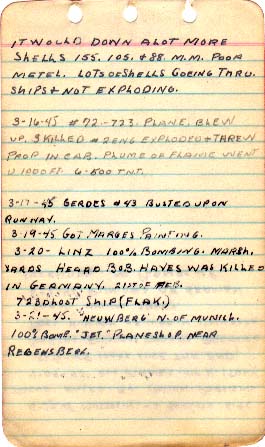 IT WOULD DOWN A LOT MORE
SHELLS 155. 105. & 88. M.M. POOR
METEL. LOTS OF SHELLS GOEING THRU.
SHIPS & NOT EXPLODING.
3-16-45 #72-723. PLANE. BLEW
UP. 3 KILLED # 2 ENG EXPLODED & THREW
PROP IN CAB. PLUME OF FLAME WENT
UP 100 FT. 6-500 TNT.
3-17-45 GERDES # 43 BUSTED UP ON
RUNWAY.
3-19-45 GOT MARGES PAINTING.
3-20- LINZ 100% BOMBING. MARSH.
YARDS HEARD BOB. HAYES WAS KILLED
IN GERMANY. 21ST OF FEB.
723D LOST SHIP (FLAK.)
3-21-45. "NEUWBERG" N. OF MUNICH.
100% BOMB. "JET" PLANE SHOP. NEAR
REGENSBERG.